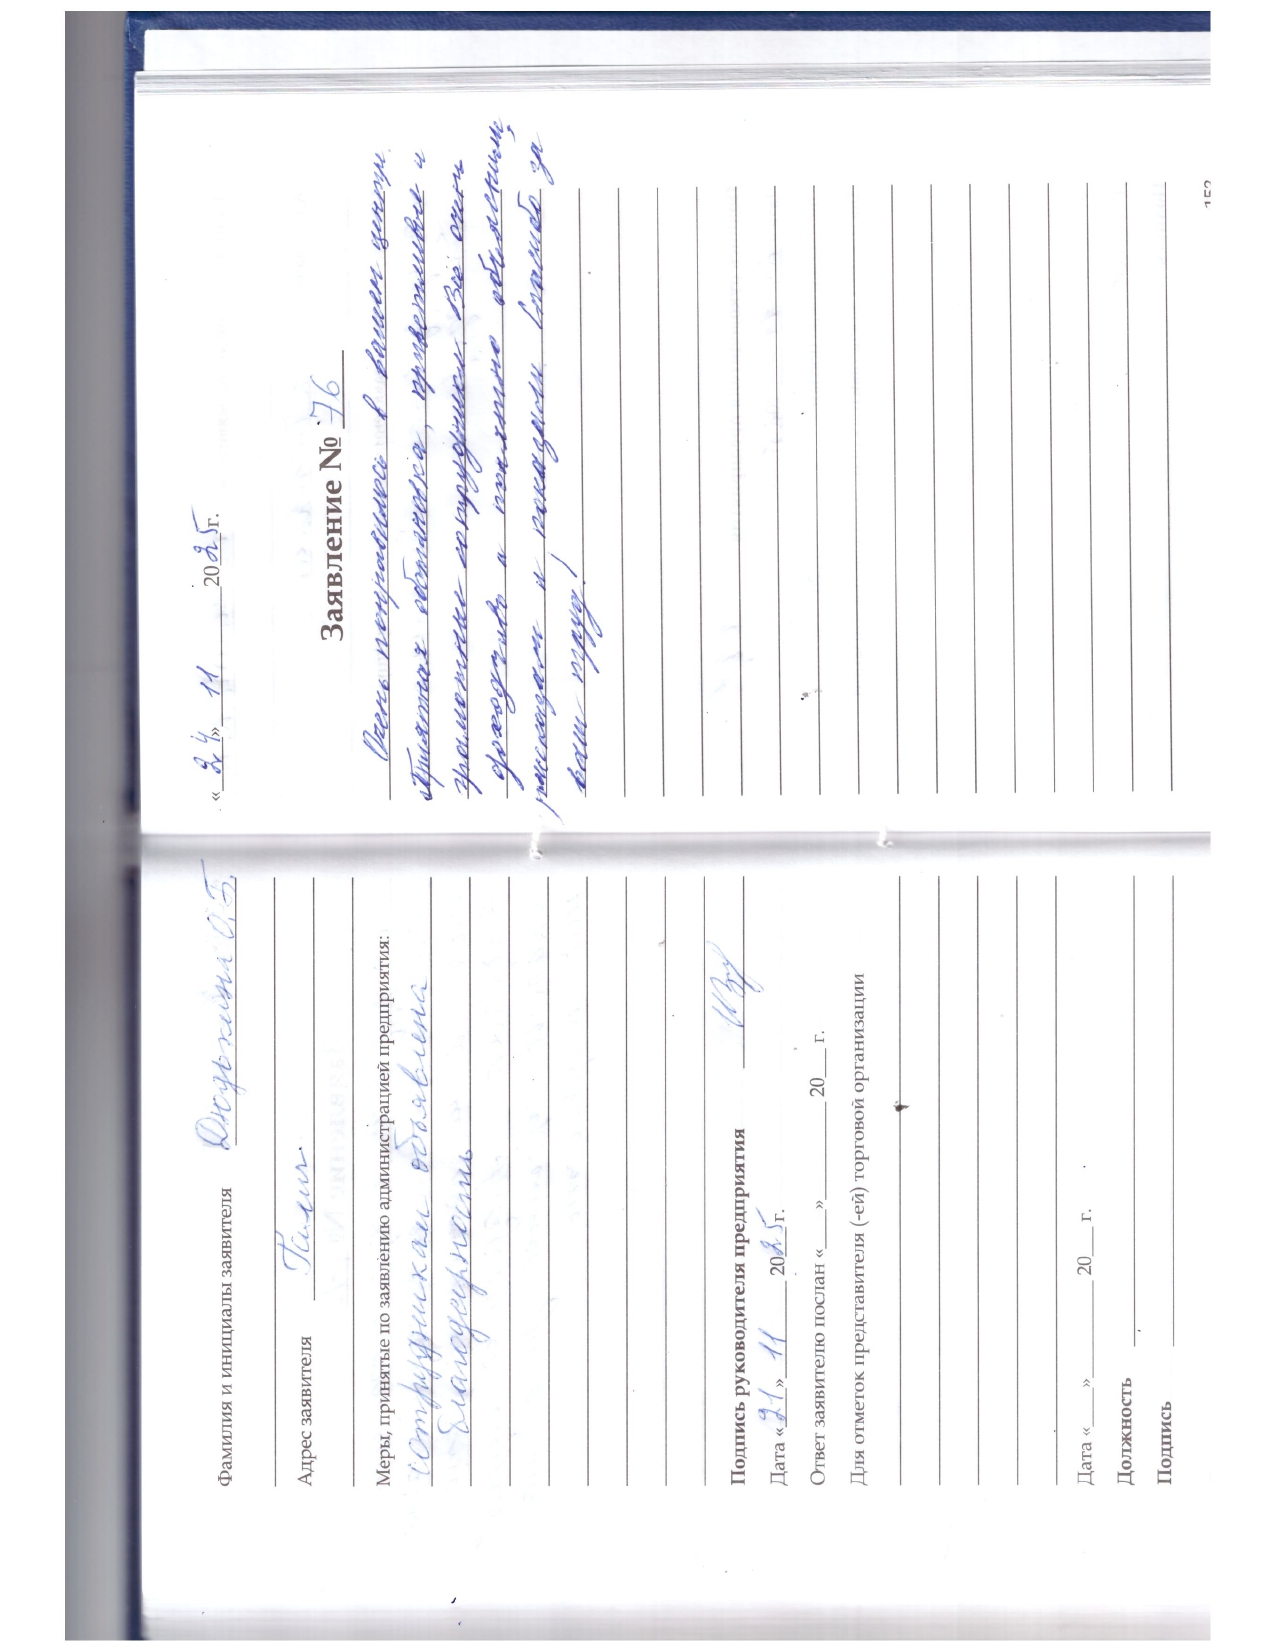 Фамилия и инициалы заявителя Дюдькина О.Б.
Адрес заявителя
Меры, принятые по заявлению администрацией предприятия:
сотрудникам объявлена
благодарность
Подпись руководителя предприятия
Дата «21» 11 2025 г.
Ответ заявителю послан «___» ________ 20___ г.
Для отметок представителя (-ей) торговой организации
Дата «___» ________ 20___ г.
Должность
Подпись
«24» 11 2025 г.
Заявление № 76
Очень понравилось в вашем центре.
Приятная обстановка, приветливые и
грамотные сотрудники. Всё очень
доходчиво и понятно объяснили,
рассказали и показали. Спасибо за
ваш труд!